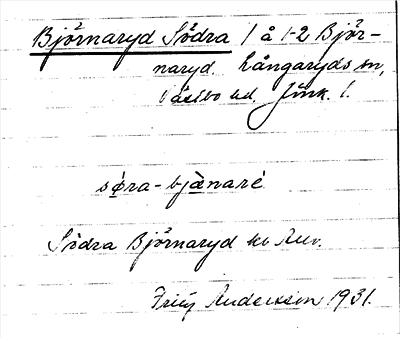 Björnaryd Södra 1 à 1-2 Björ-
naryd. Långaryds sn,
Västbo hd. Jönk. l.
sø̀ra-bjæ̀naré
Södra Björnaryd
Andersson 1931.